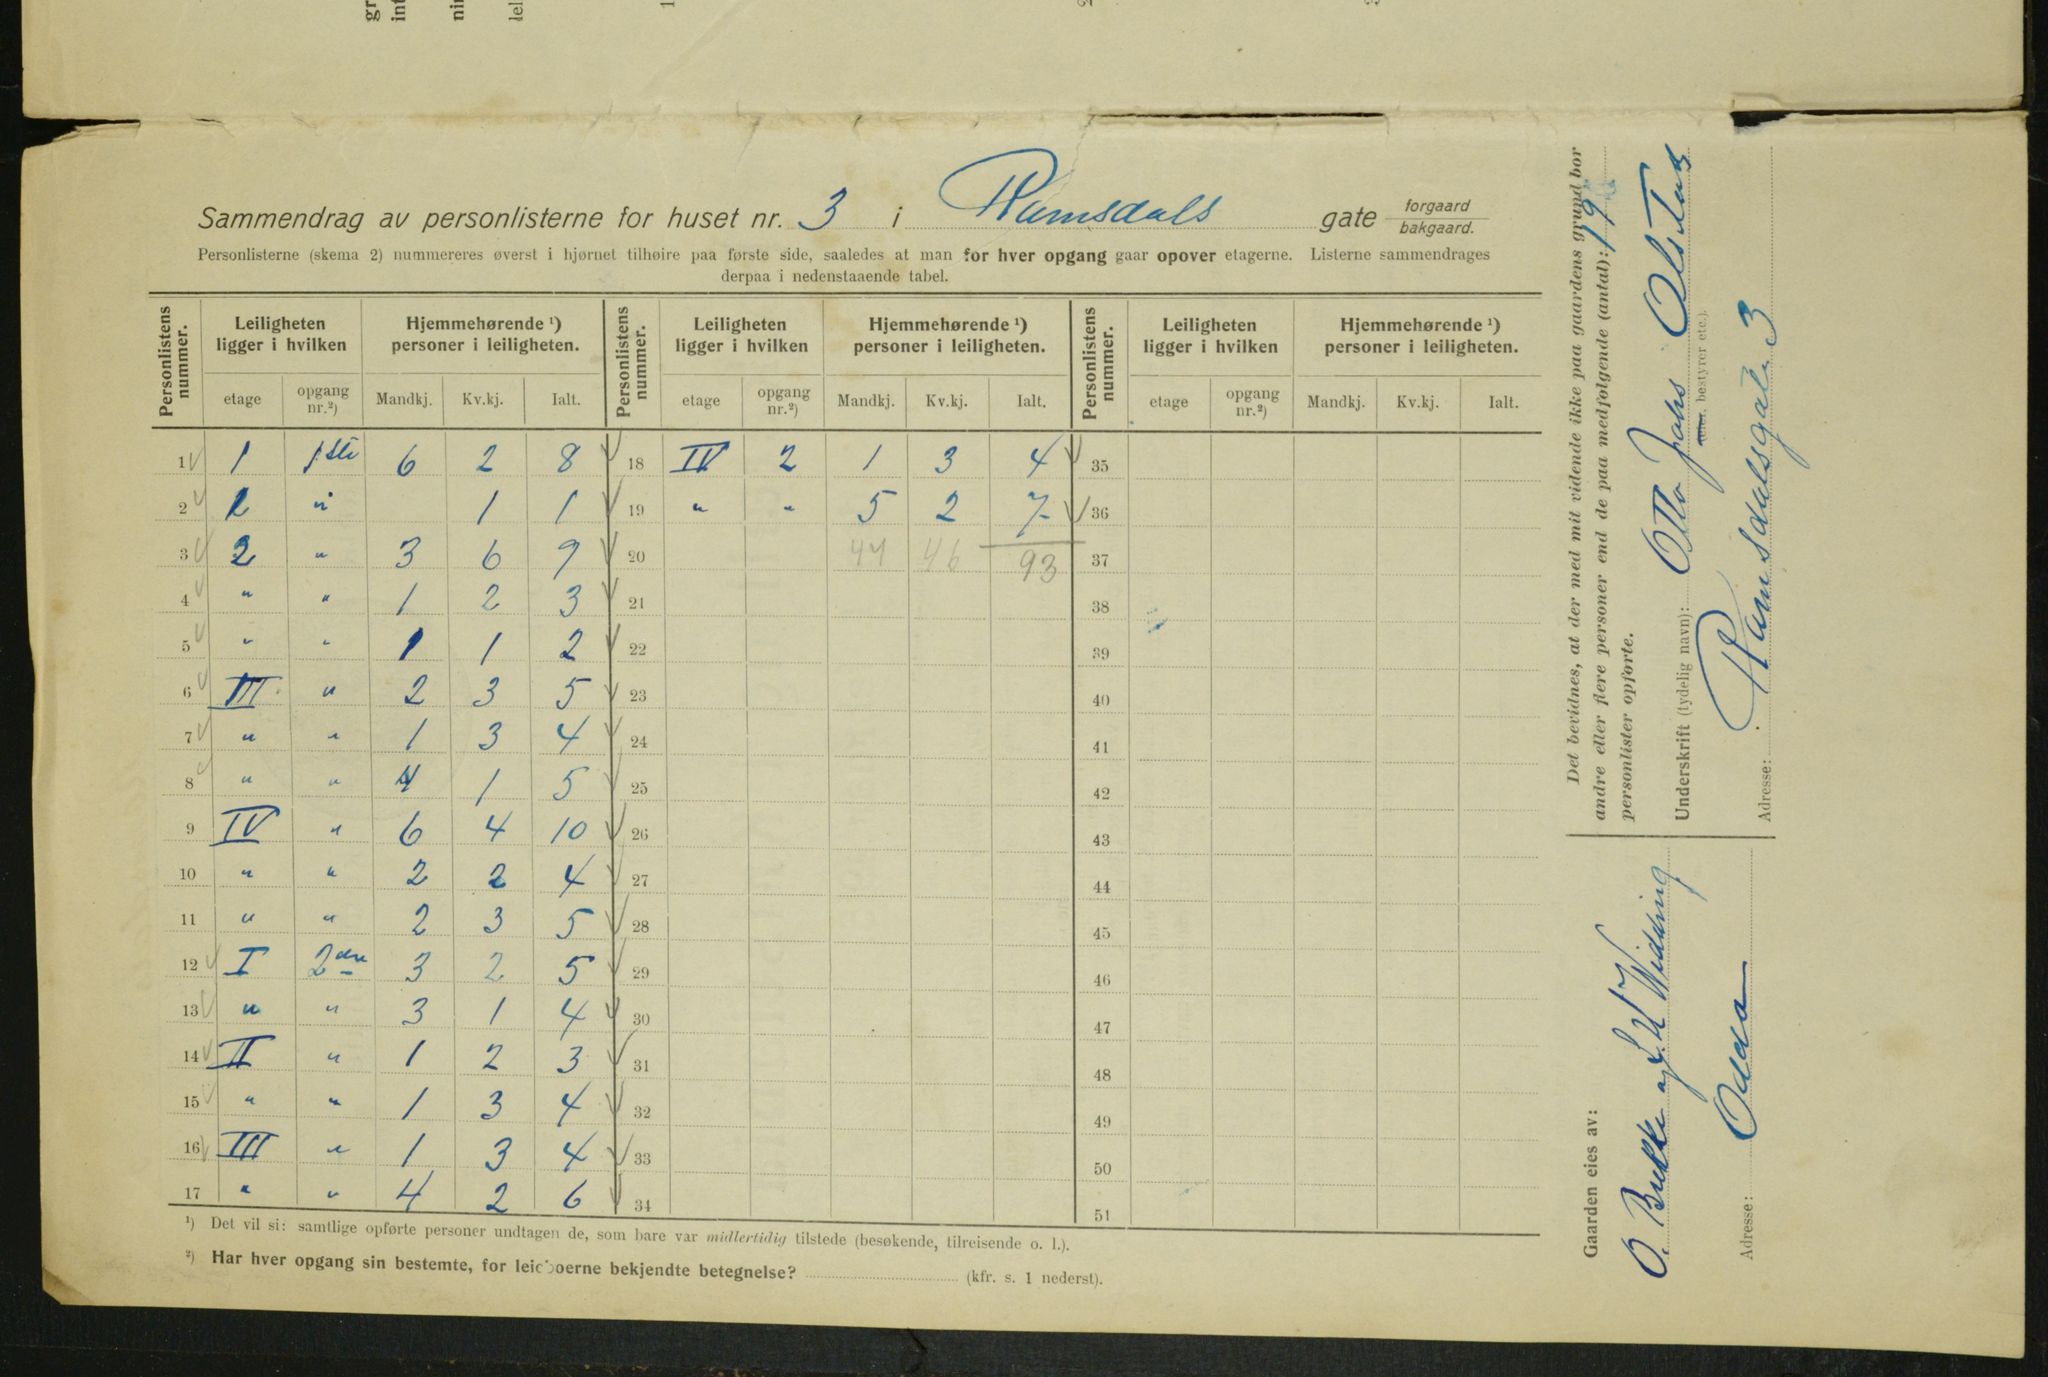 Sammendrag av personlisterne for huset nr. 3 i Rumsdals gate forgaard bakgaard.
Personlisterne (skema 2) nummereres øverst i hjørnet tilhøire paa første side, saaledes at man for hver opgang gaar opover etagerne. Listerne sammendrages
derpaa i nedenstaaende tabel.
Personlistens nummer. Leiligheten ligger i hvilken Hjemmehørende ¹) personer i leiligheten. Personlistens nummer. Leiligheten ligger i hvilken Hjemmehørende ¹) personer i leiligheten. Personlistens nummer. Leiligheten ligger i hvilken Hjemmehørende ¹) personer i leiligheten.
etage opgang nr.²) Mandkj. Kv.kj. Ialt. etage opgang nr.²) Mandkj. Kv.kj. Ialt. etage opgang nr.²) Mandkj. Kv.kj. Ialt.
1 1 1ste 6 2 8 18 IV 2 1 3 4 35
2 1 " 1 1 19 " " 5 2 7 36
3 2 " 3 6 9 20 47 46 93 37
4 " " 1 2 3 21 38
5 " " 1 1 2 22 39
6 III " 2 3 5 23 40
7 " " 1 3 4 24 41
8 " " 4 1 5 25 42
9 IV " 6 4 10 26 43
10 " " 2 2 4 27 44
11 " " 2 3 5 28 45
12 I 2den 3 2 5 29 46
13 " " 3 1 4 30 47
14 II " 1 2 3 31 48
15 " " 1 3 4 32 49
16 III " 1 3 4 33 50
17 " " 4 2 6 34 51
¹) Det vil si: samtlige opførte personer undtagen de, som bare var midlertidig tilstede (besøkende, tilreisende o. l.).
²) Har hver opgang sin bestemte, for leieboerne bekjendte betegnelse? (kfr. s. 1 nederst).
Det bevidnes, at der med mit vidende ikke paa gaardens grund bor
andre eller flere personer end de paa medfølgende (antal): 19
personlister opførte.
Underskrift (tydelig navn): Otto
bestyrer etc.).
Adresse: Rumsdalsgate 3
Gaarden eies av:
O. Brekke og Widding
Adresse: Odda